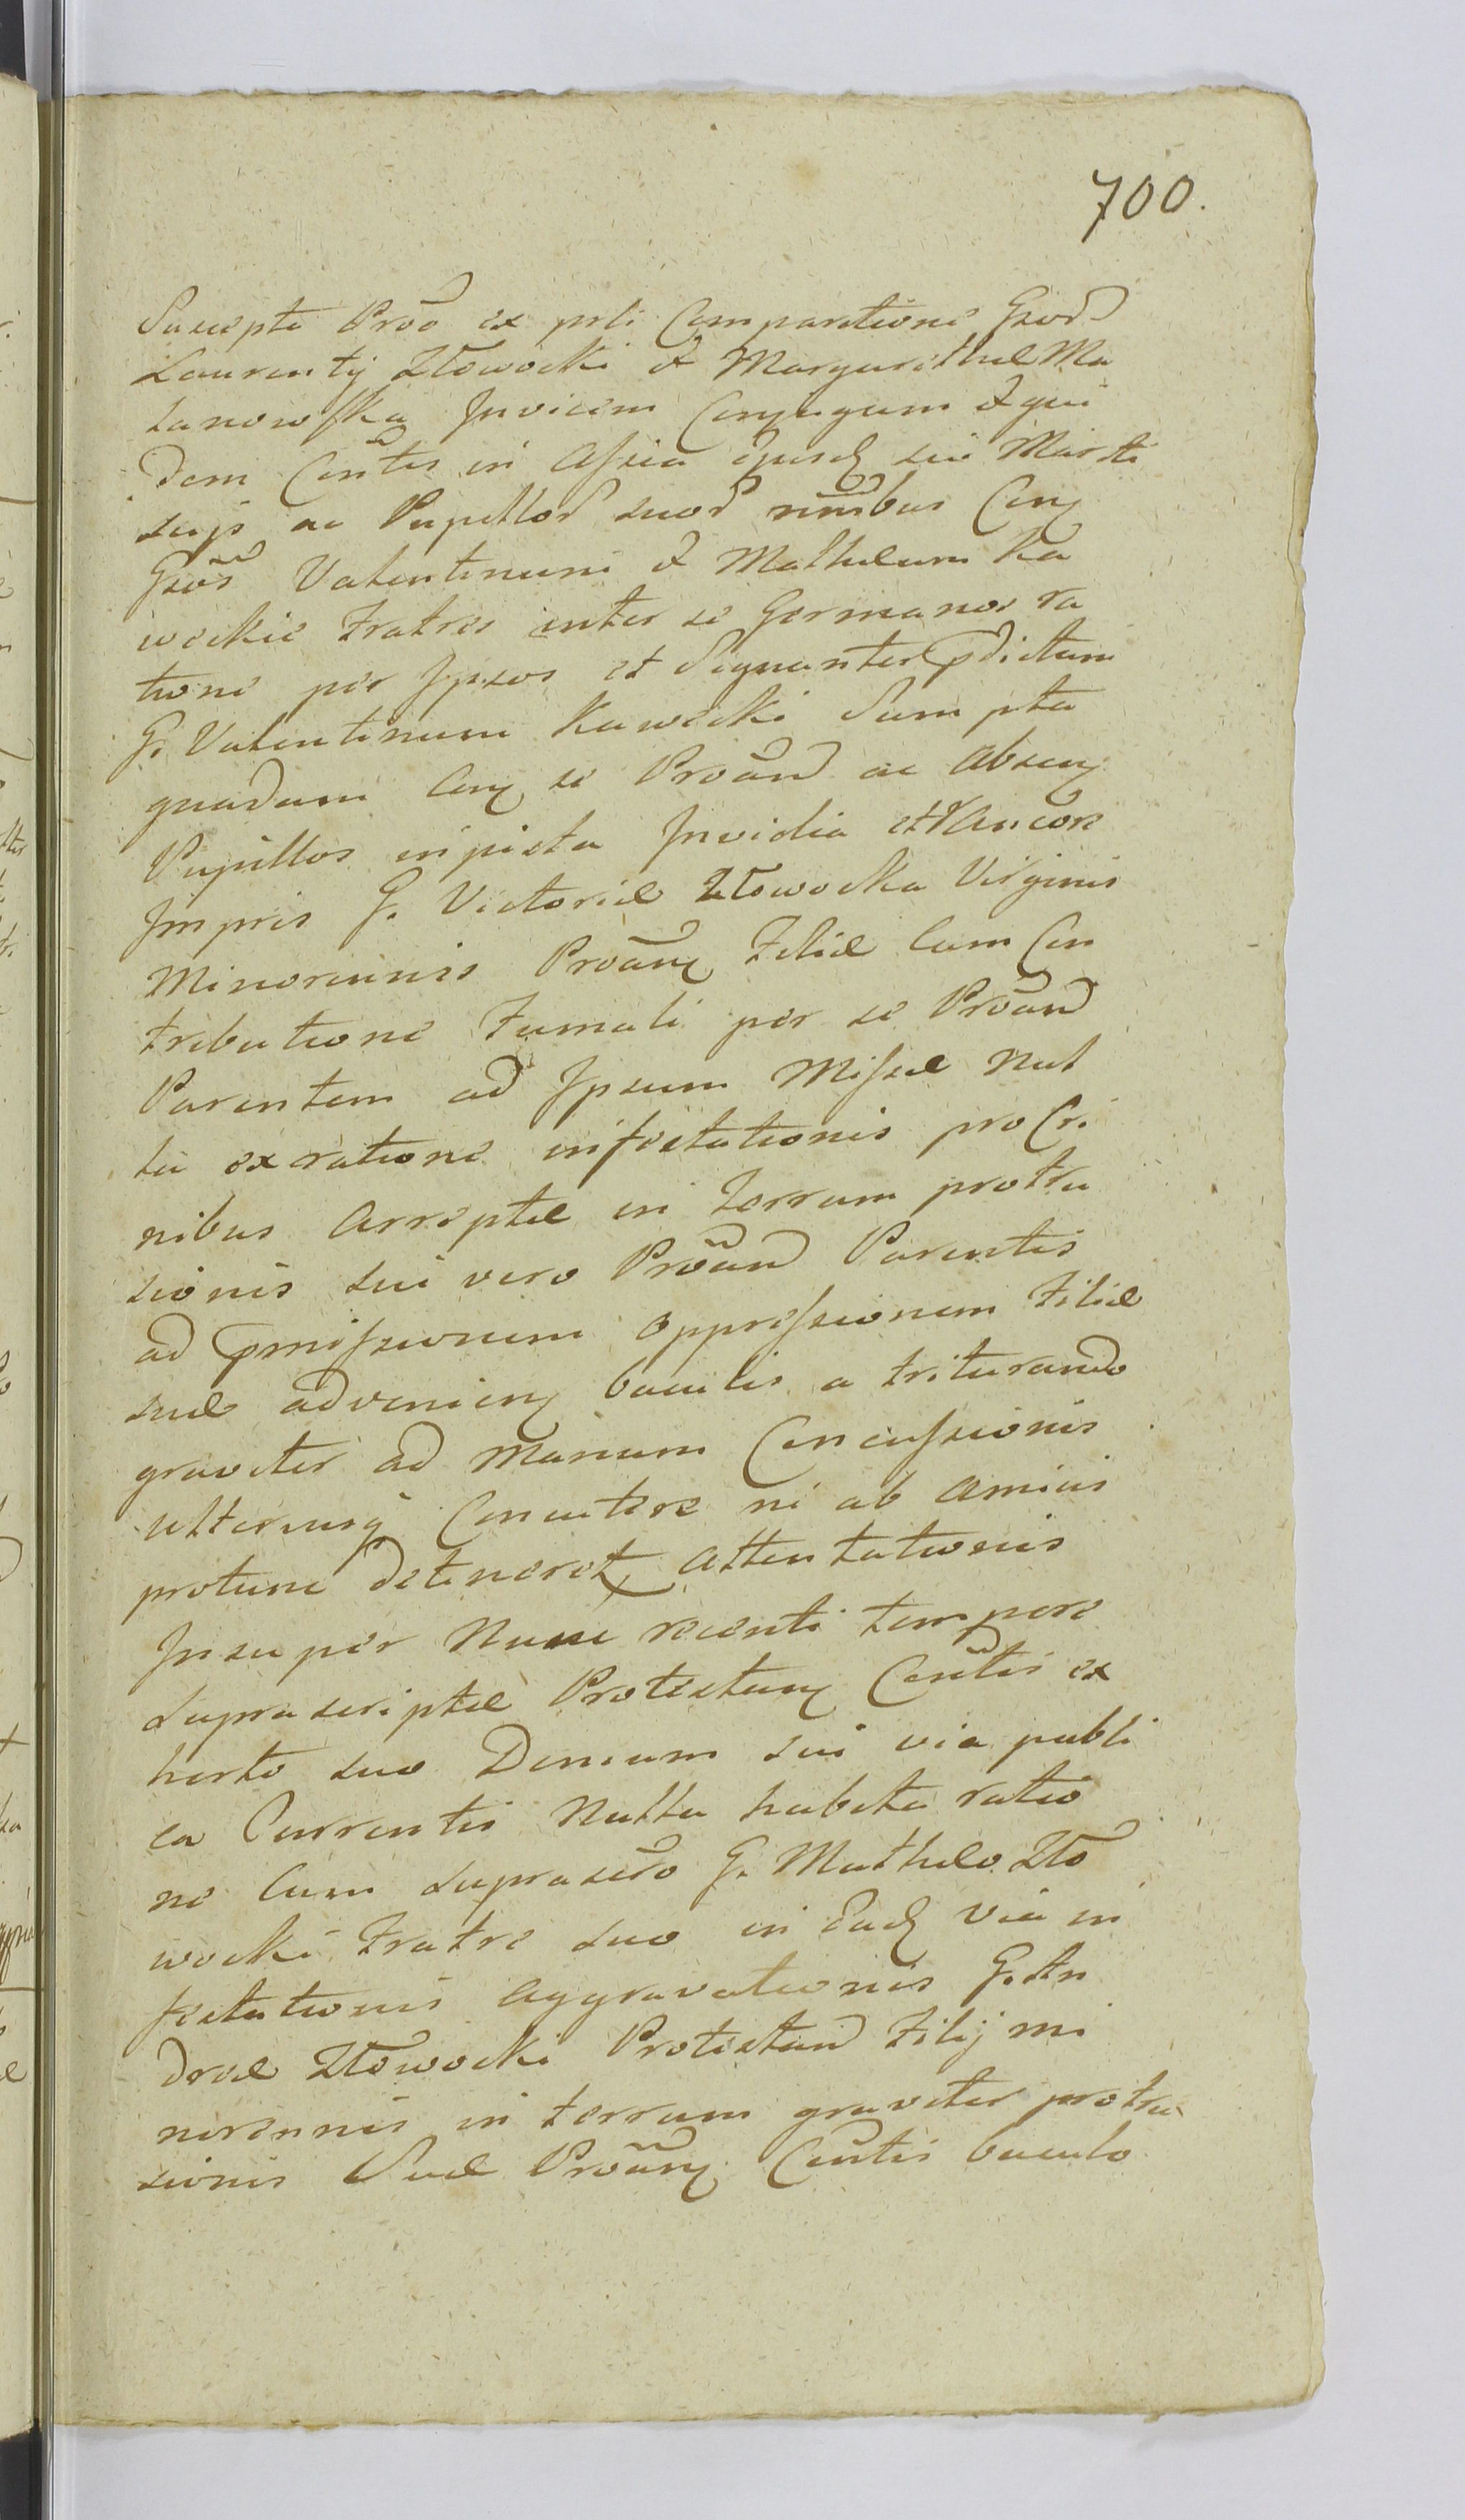 700.
Suscepta Prõo ex prti Comparatione Gsord
Laurentij Zło wocki & Margarethæ Ma
tanowska Invicem Conjugum & qui
dem Conŧis in Assia Ejusd sui Mariti
suiqs ac Pupillor suor nnĩbus Con
Gsos Valentinum & Mathæum Ka
weckie Fratres inter se Germanos ra
tione per Ipsos et Signanter pdictum
G. Valentinum Kawecki Sumpta
quadam Con se Proãnd ac absen
Pupillos injusta Invidia et Rancore
Impris G. Victoriæ Złowocka Virginis
Minorennis Proãn Filiæ Cum Con
tributione Fumali per se Proãnd
Parentem ad Ipsum Missæ Nul
la ex ratione infestationis pro Cri
nibus Arreptæ in terram protru
sionis sui vero Proãnd Parentis
ad pmissionem oppressionem Filiæ
suæ advenien baculis a triturando
graviter ad Manum Concussionis
ulteriusq Concutere ni ab amicis
protunc detineret, attentationis
Insuper Nunc recenti tempore
Suprascriptæ Protestan Conŧis ex
horto suo Domum sui via publi
ca Currentis Nulla habita ratio
ne Cum suprascro G. Mathæo Zło
wocki Fratre suo in Ead via in
festationis aggravationis G. An
dreæ Złowocki Protestand Filij mi
norennis in terram graviter protru
sionis Suæ Proãn Conŧis baculo